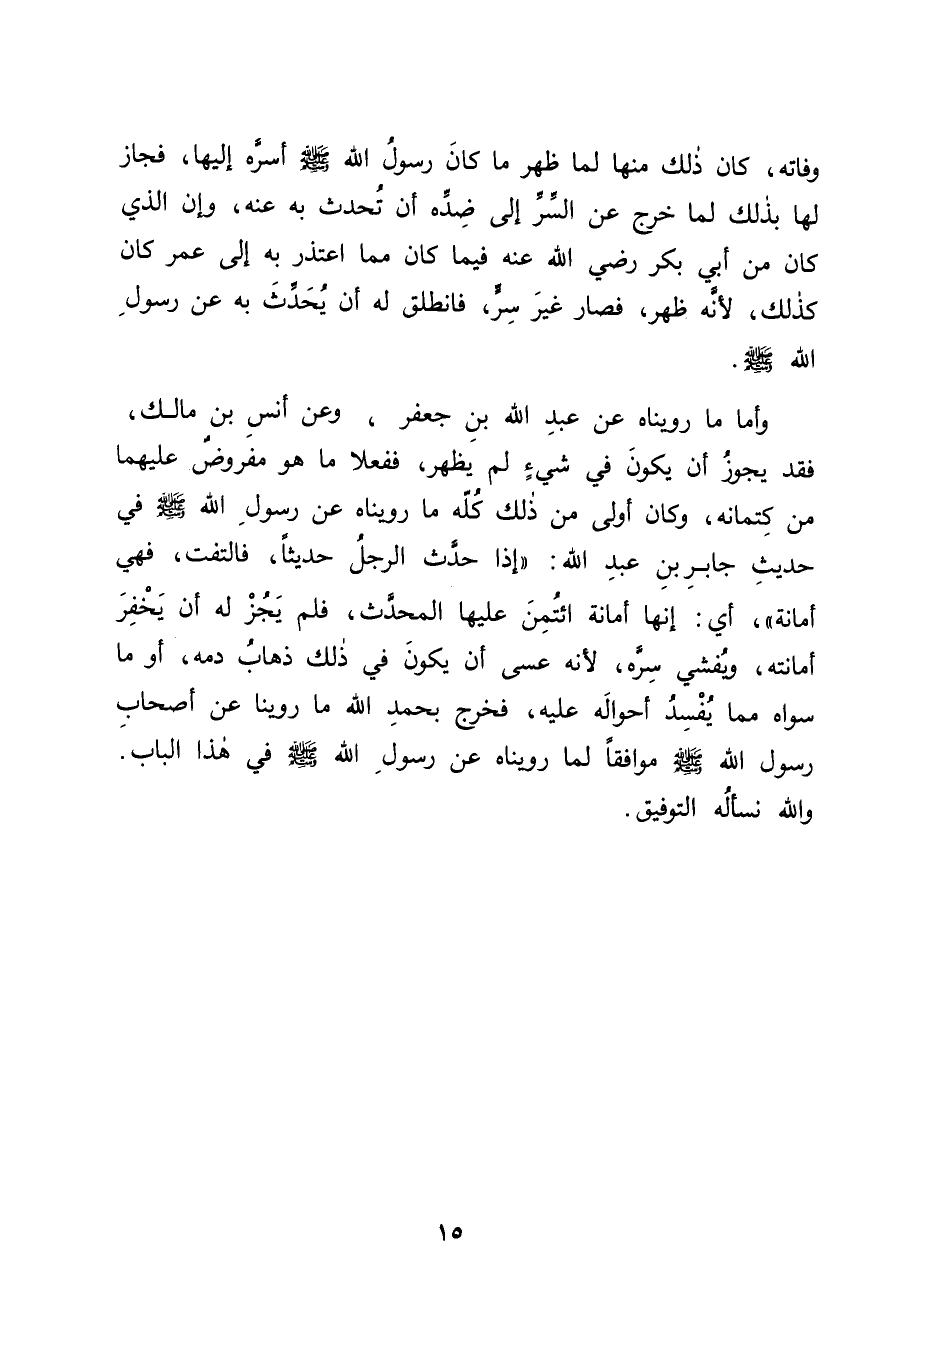 وفاته، كان ذٰلك منها لما ظهر ما كانَ رسولُ الله ﷺ أسرَّه إليها، فجاز
لها بذٰلك لما خرج عن السِّرِّ إلى ضِدِّه أن تُحدث به عنه، وإن الذي
كان من أبي بكر رضي الله عنه فيما كان مما اعتذر به إلى عمر كان
كذٰلك، لأنَّه ظهر، فصار غيرَ سِرٍّ، فانطلق له أن يُحَدِّثَ به عن رسولِ
الله ﷺ.
وأما ما رويناه عن عبدِ الله بنِ جعفر ، وعن أنسِ بن مالـك،
فقد يجوزُ أن يكونَ في شيءٍ لم يظهر، ففعلا ما هو مفروضٌ عليهما
من كِتمانه، وكان أولى من ذٰلك كُلّه ما رويناه عن رسولِ الله ﷺ في
حديثِ جابـرِ بنِ عبدِ الله: «إذا حدَّث الرجلُ حديثاً، فالتفت، فهي
أمانة»، أي: إنها أمانة ائتُمِنَ عليها المحدَّث، فلم يَجُزْ له أن يَخْفِرَ
أمانته، ويُفشي سِرَّه، لأنه عسى أن يكونَ في ذٰلك ذهابُ دمه، أو ما
سواه مما يُفْسِدُ أحوالَه عليه، فخرج بحمدِ الله ما روينا عن أصحابِ
رسول الله ﷺ موافقاً لما رويناه عن رسولِ الله ﷺ في هٰذا الباب.
والله نسألُه التوفيق.
١٥